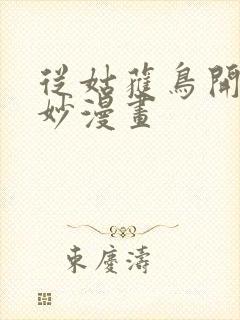 從姑獲鳥開
妙漫畫
東慶濤